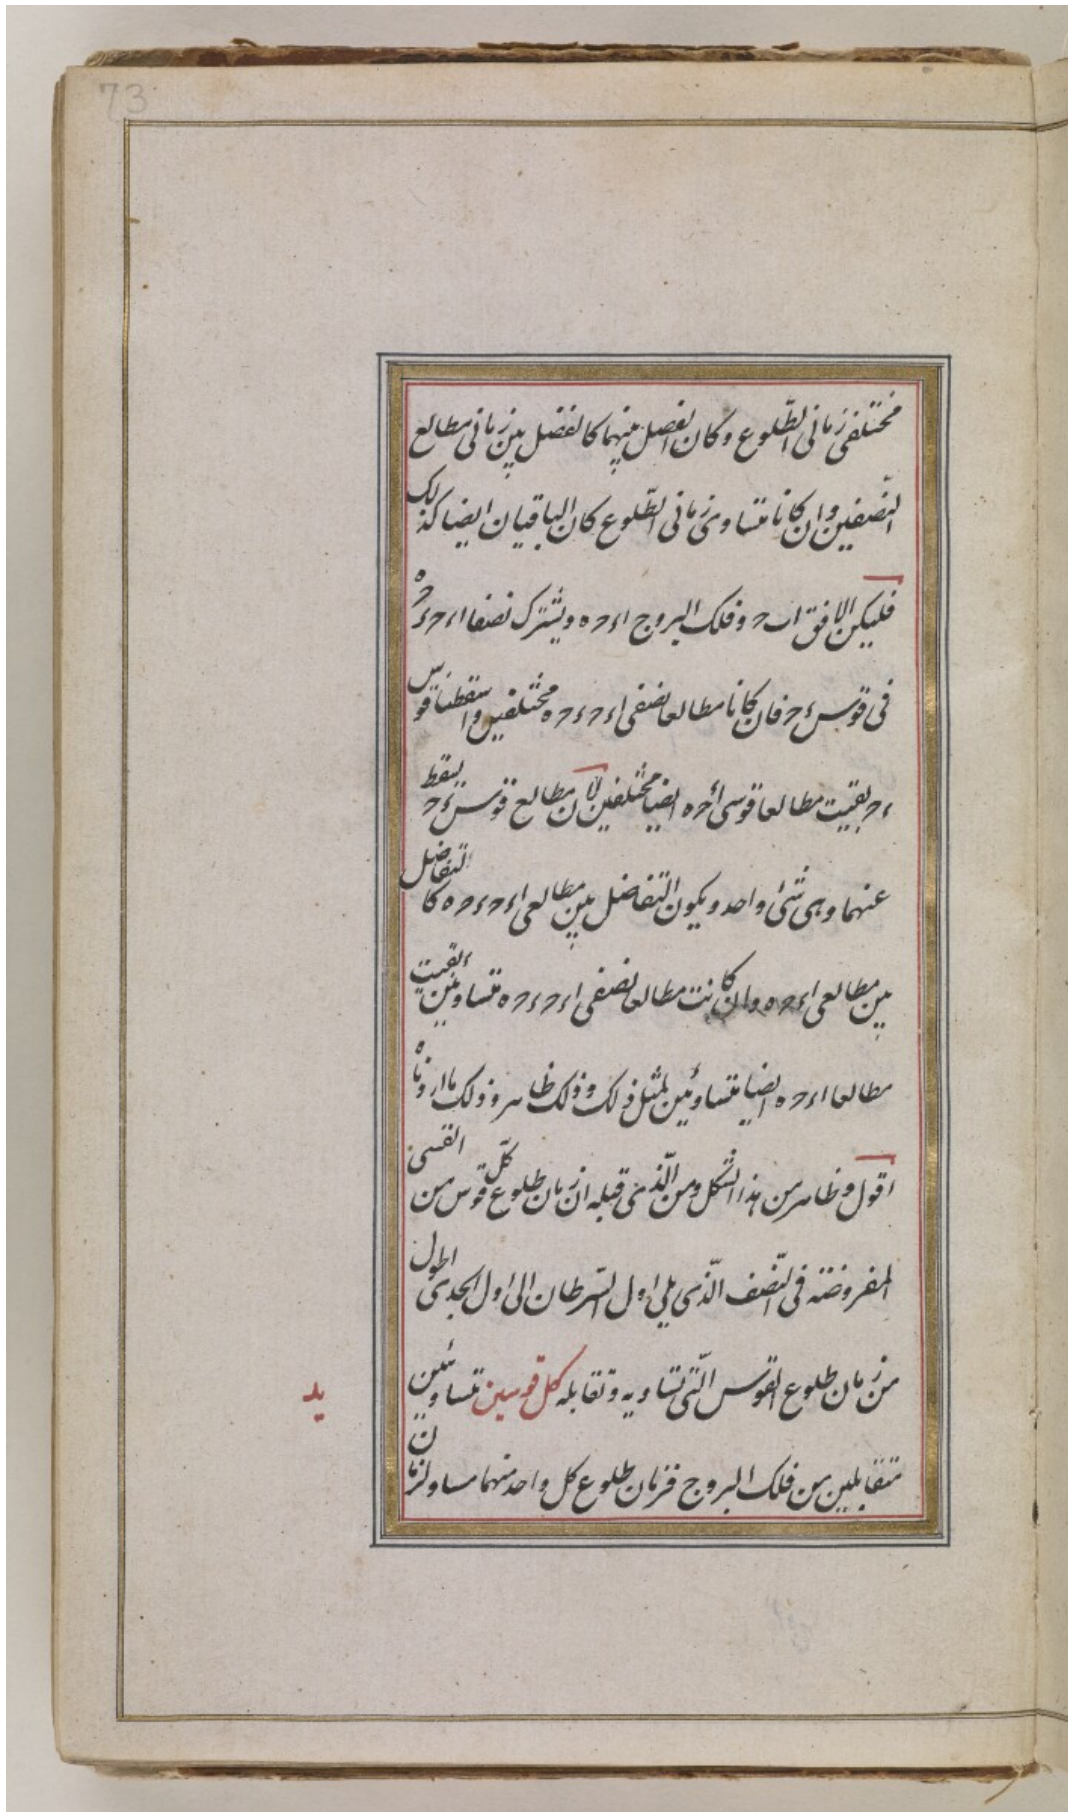 73
مختلفی زمانی الطّلوع وکان الفصل بینهما کالفضل بین زمانی مطالع
النّصفین وان کانا متساوی زمانی الطّلوع کان الباقیان ایضا کذلک
فلیکن الافق ا ب ح وفلک البروج ا ء ح ه ویشترک نصفا ا ء ح ء ح ه
فی قوس ء ح فان کانا مطالعا نصفی ا ء ح ء ح ه مختلفین واسقطنا قوس
ء ح بقیت مطالعا قوسی ا ء ح ه ایضا مختلفین لان مطالع قوس ء ح یسقط
عنهما وهی شئ واحد ویکون التفاضل بین مطالعی ا ء ح ء ح ه کالتفاضل
بین مطالعی ا ء ح ه وان کانت مطالعا نصفی ا ء ح ء ح ه متساویین بقیت
مطالعا ا ء ح ه ایضا متساویین لمثل ذلک وذلک ظاهر وذلک ما اردناه
اقول وظاهر من هذا الشکل ومن الّذی قبله ان زمان طلوع کلّ قوس من القسی
المفروضة فی النّصف الّذی یلی اول السّرطان الی اول الجدی اطول
من زمان طلوع القوس الّتی تساویه وتقابله کل قوسین متساویین
ید
متقابلین من فلک البروج فزمان طلوع کل واحد منهما مساو لزمان